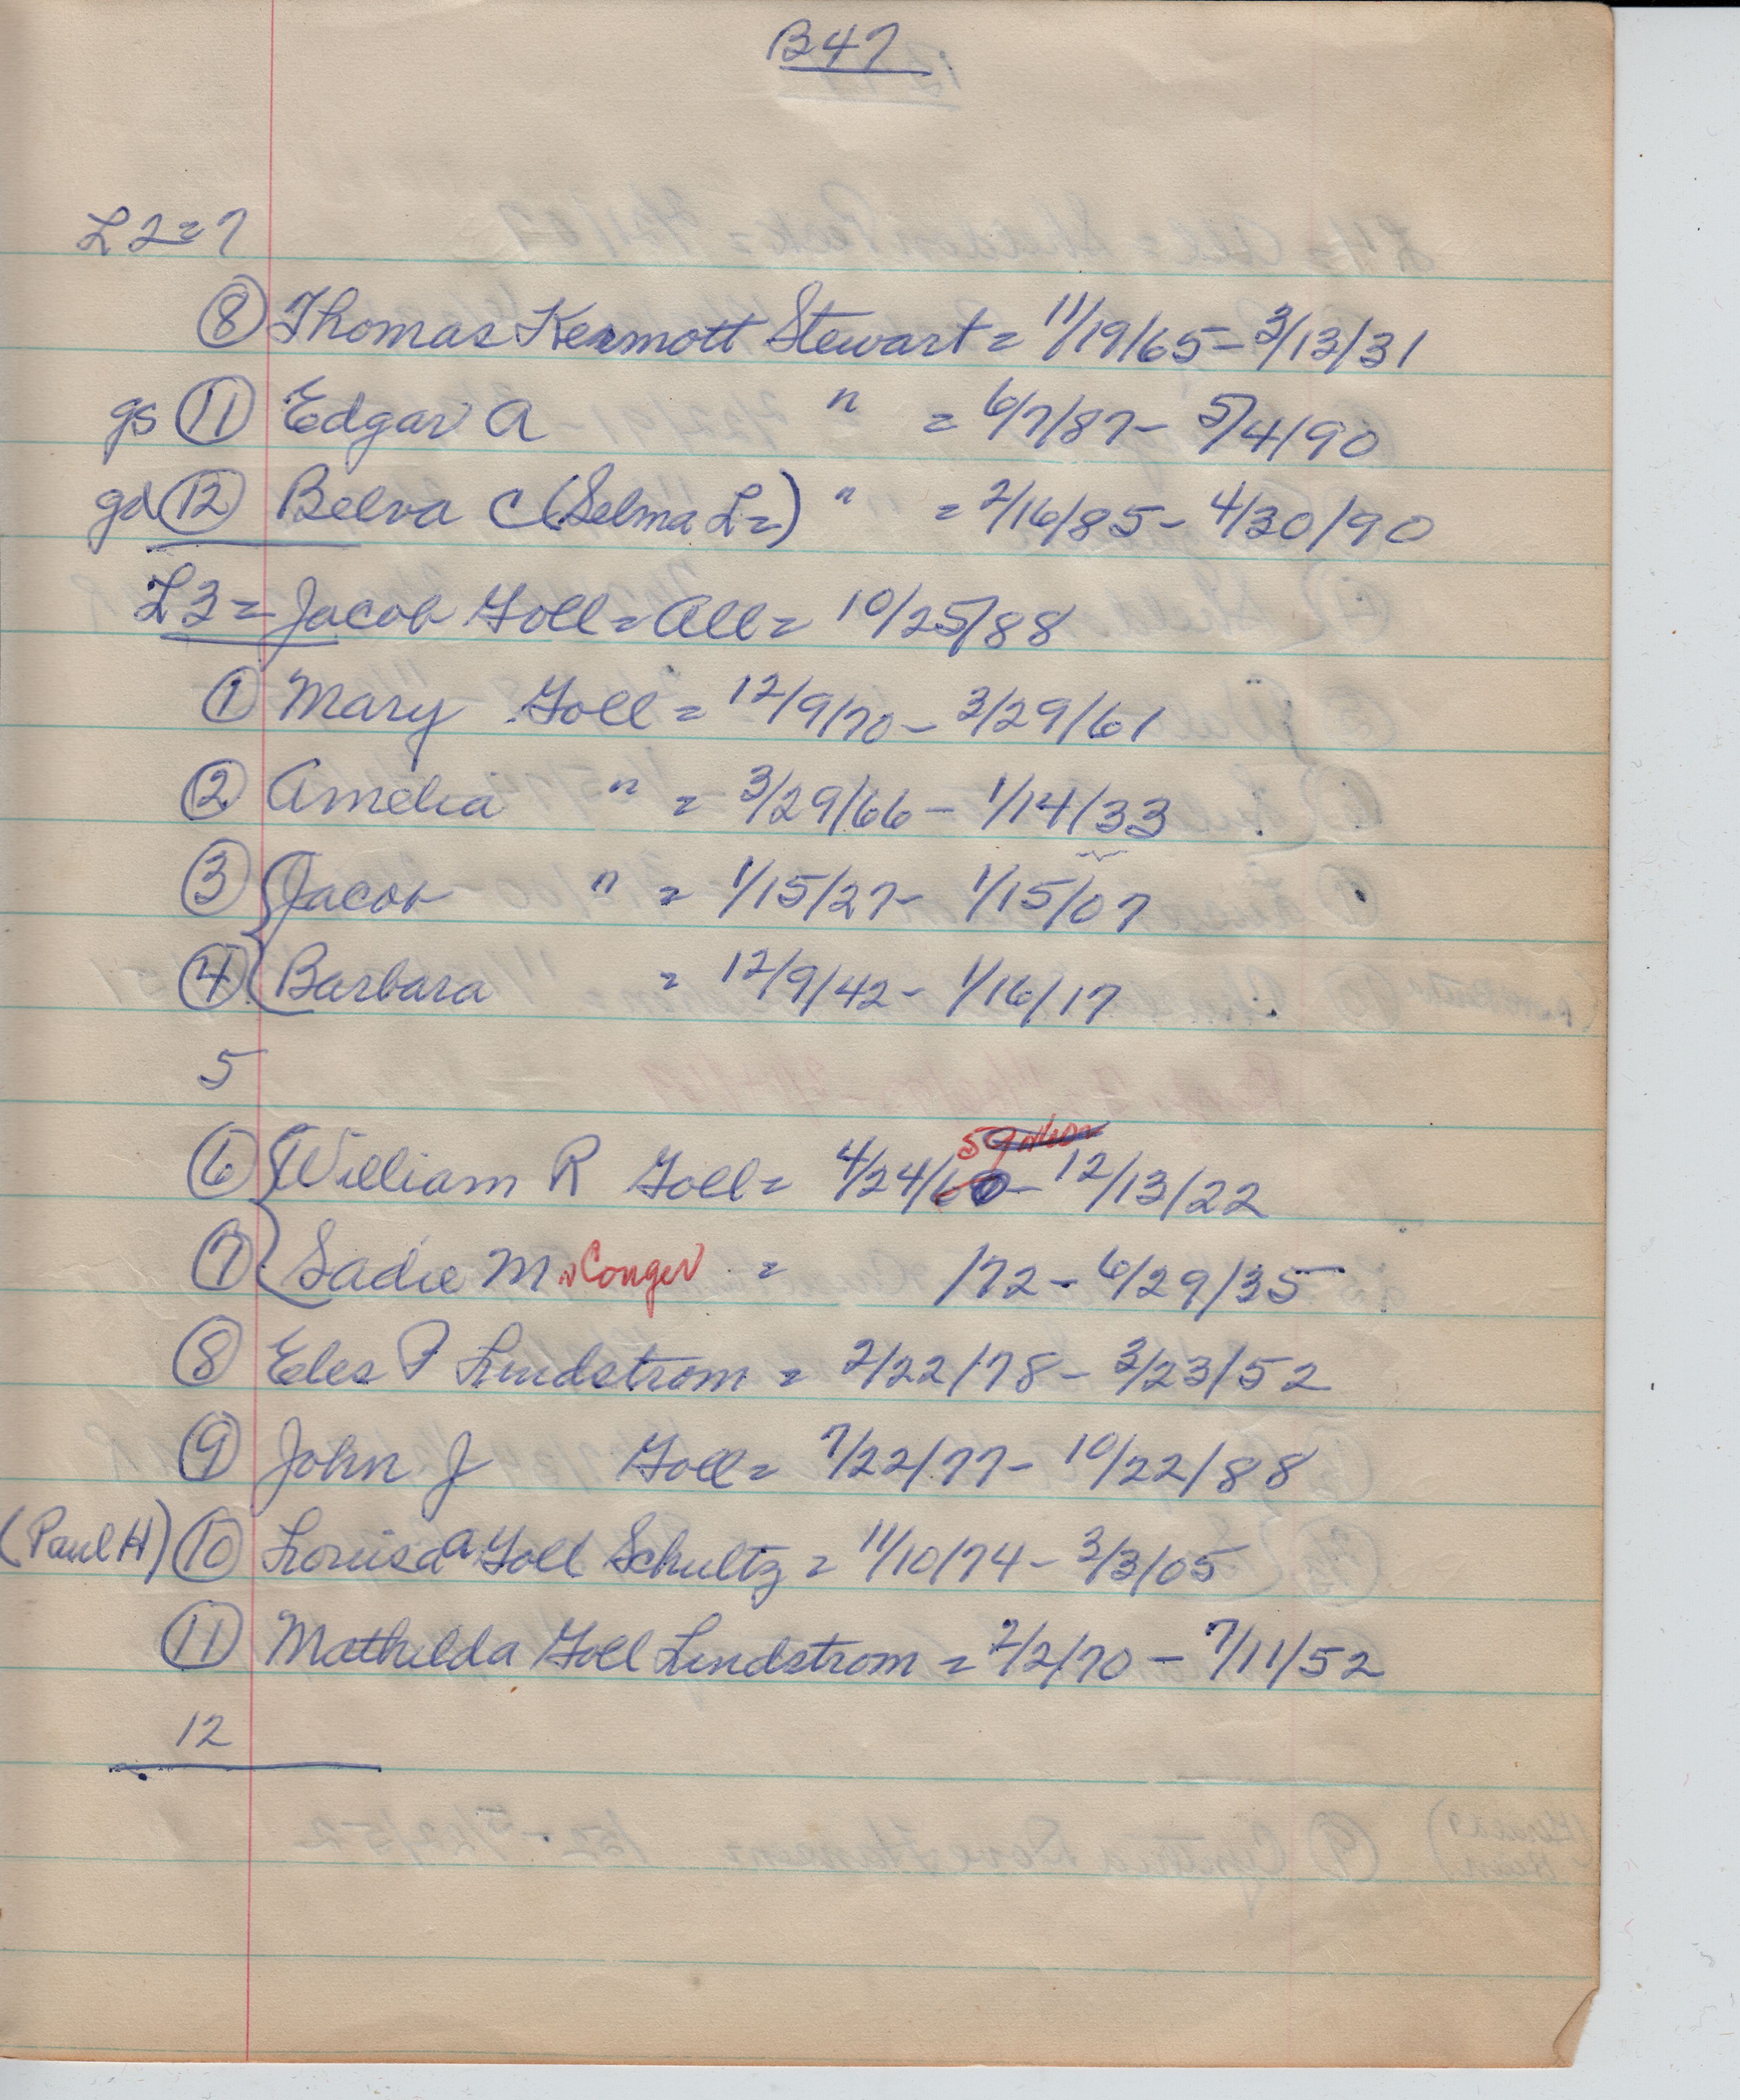 B47
L2=?
⑧ Thomas Kermott Stewart = 11/19/65 - 3/13/31
gs ⑪ Edgar A " = 6/7/87 - 5/4/90
gd ⑫ Belva C (Selma L=) " = 2/16/85 - 4/30/90
L3 = Jacob Goll = All = 10/25/88
① Mary Goll = 12/9/70 - 3/29/61
② Amelia " = 3/29/66 - 1/14/33
③ Jacob " = 1/15/27 - 1/15/07
④ Barbara = 12/9/42 - 1/16/17
5
59
⑥ William R Goll = 4/24/60 - 12/13/22
⑦ Sadie M Conger = /72 - 6/29/35
⑧ Eles P Lindstrom = 2/22/78 - 3/23/52
⑨ John J Goll = 7/22/77 - 10/22/88
(Paul H) ⑩ Louisa A Goll Schultz = 11/10/74 - 3/3/05
⑪ Mathilda Goll Lindstrom = 2/2/70 - 7/11/52
12